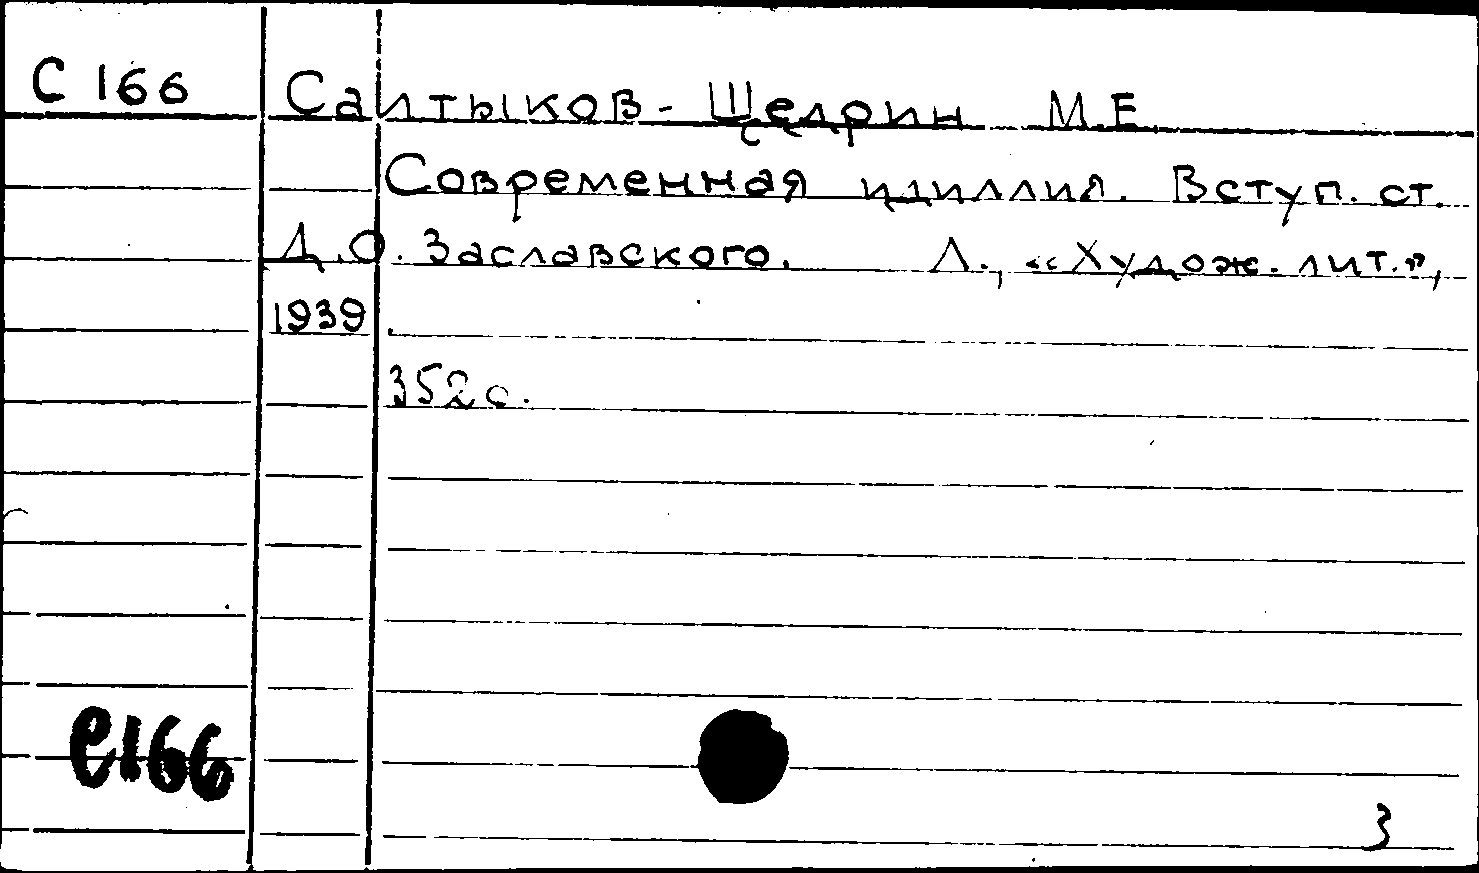 С 166 Салтыков-Щедрин М.Е.
Современная идиллия. Вступ. ст.
Д.О. Заславского. Л., «Худож. лит.»,
1939
352 с.
С166
3